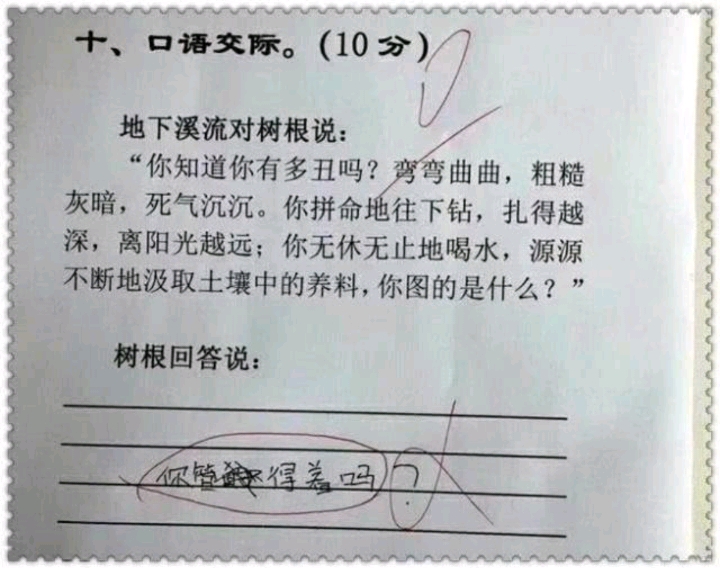 十、口语交际。(10分)
地下溪流对树根说：
“你知道你有多丑吗？弯弯曲曲，粗糙
灰暗，死气沉沉。你拼命地往下钻，扎得越
深，离阳光越远；你无休无止地喝水，源源
不断地汲取土壤中的养料，你图的是什么？”
树根回答说：
你管得着吗？